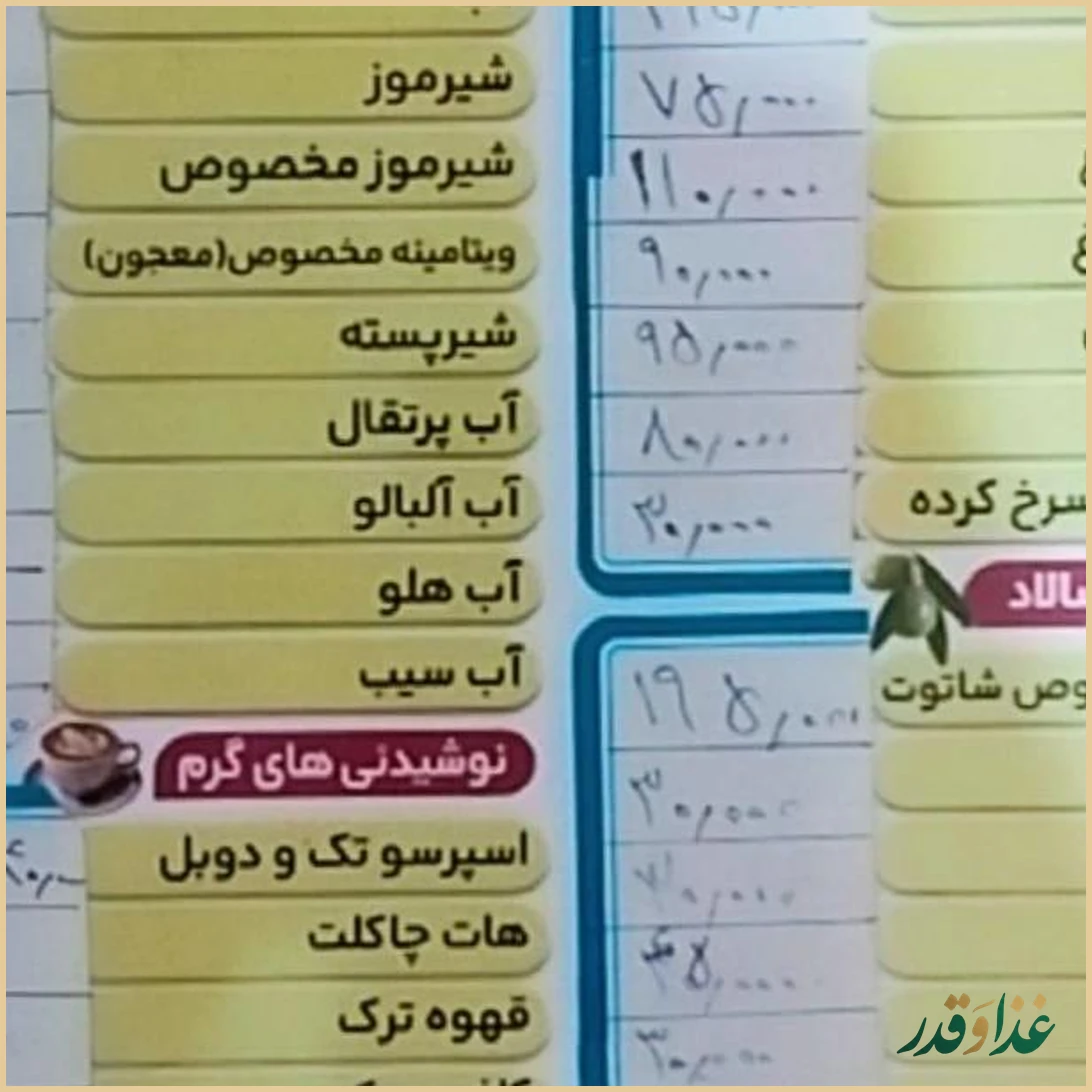 شیرموز
شیرموز مخصوص
ویتامینه مخصوص(معجون)
شیرپسته
آب پرتقال
آب آلبالو
آب هلو
آب سیب
نوشیدنی های گرم
اسپرسو تک و دوبل
هات چاکلت
قهوه ترک
۷۵,۰۰۰
۱۱۰,۰۰۰
۹۰,۰۰۰
۹۵,۰۰۰
۸۰,۰۰۰
۳۰,۰۰۰
۱۹۵,۰۰۰
۳۰,۰۰۰
۳۰,۰۰۰
سرخ کرده
شاتوت
غذا و قدر